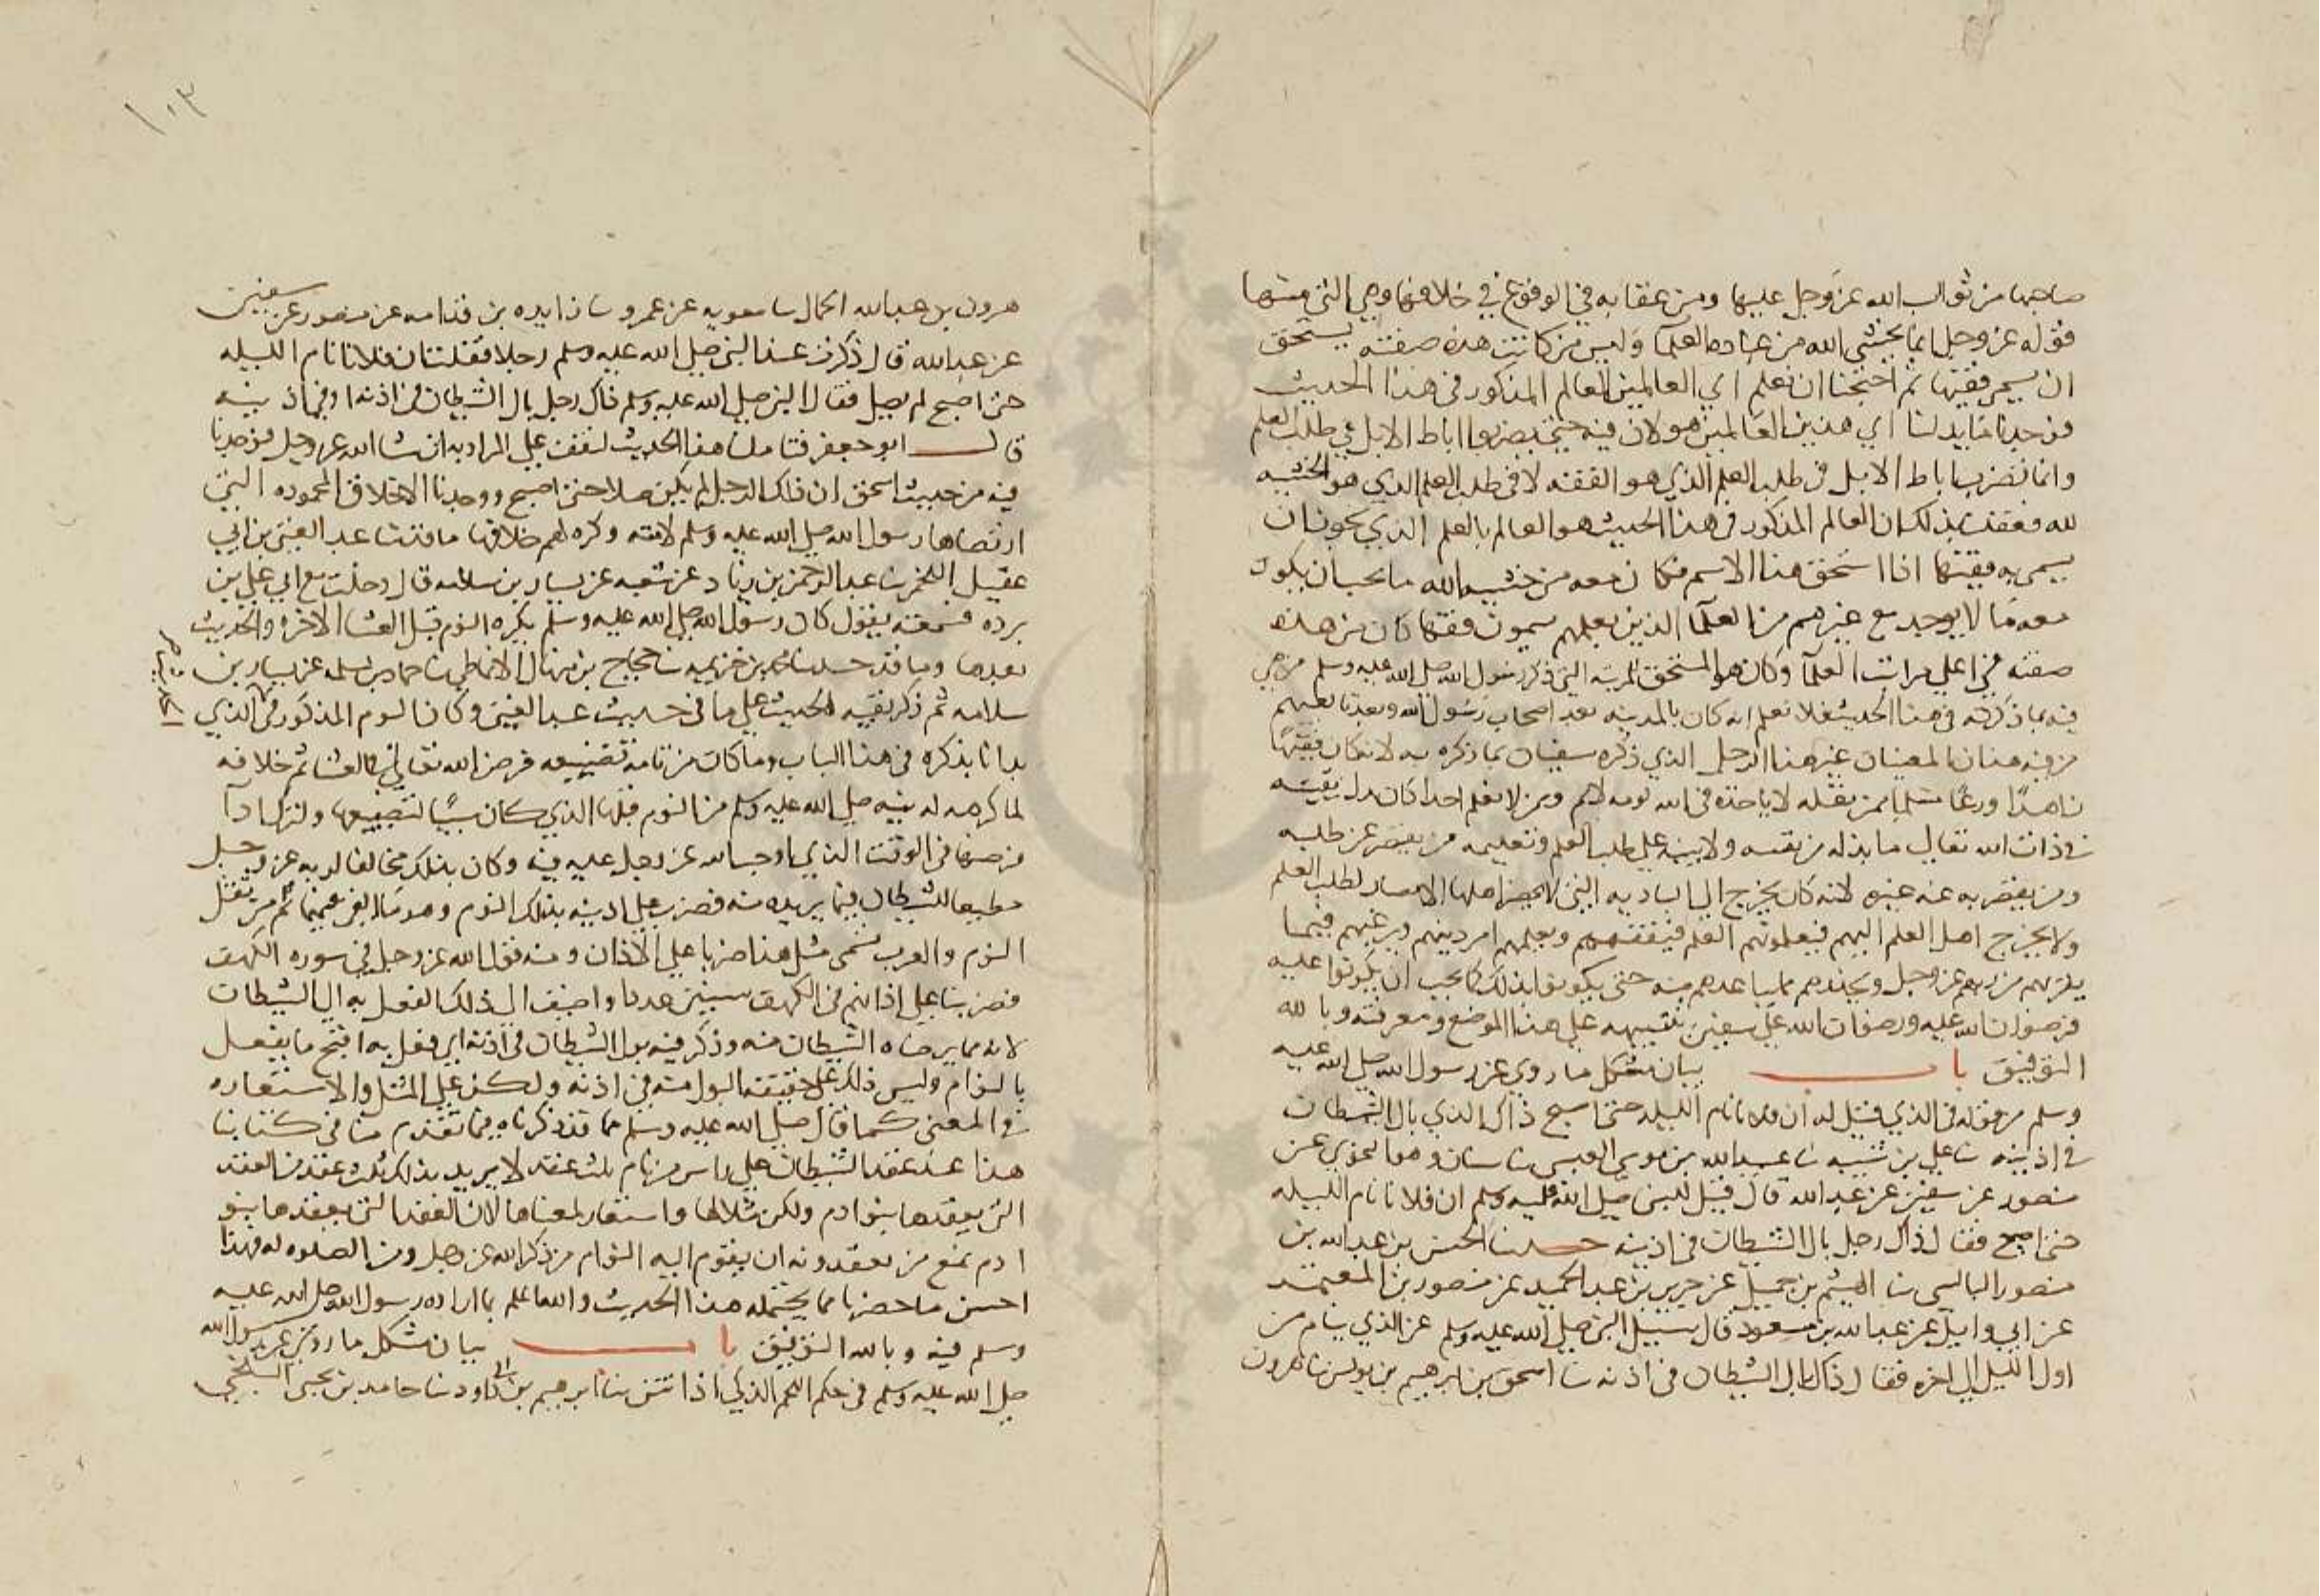 صاحبها من ثواب الله عز وجل عليها ومن عقابه في الوقوع في خلافها وهي التي منها
قوله عز وجل انما يخشى الله من عباده العلما وليس من كانت هذه صفته يستحق
ان يسمى فقيها ثم احتجنا ان نعلم اي العالمين العالم المذكور في هذا الحديث
فوجدنا ما يدلنا اي هذين العالمين هو لان فيه حتى يضربوا اباط الابل في طلب العلم
وانما تضرب اباط الابل في طلب العلم الذي هو الفقه لا في طلب العلم الذي هو الخشيه
لله فعقلنا بذلك ان العالم المذكور في هذا الحديث هو العالم بالعلم الذي يجوز ان
يسمى به فقيها اذا استحق هذا الاسم فكان معه من خشيه الله ما يجب ان يكون
معه ما لا يوجد مع غيرهم من العلما الذين بعلمهم يسمون فقها كان من هذه
صفته في اعلى مراتب العلما وكان هو المستحق للمرتبه التي ذكر رسول الله صلى الله عليه وسلم من هي
فيه بما ذكره في هذا الحديث فلا نعلم انه كان بالمدينه بعد اصحاب رسول الله وبعد تابعيهم
من فيه هذان المعنيان غير هذا الرجل الذي ذكره سفيان بما ذكره به لانه كان فقيها
زاهدا ورعا لا ياخذه في الله لومه لايم وممن لا نعلم احدا كان بذل نفسه
في ذات الله تعالى ما بذله من نفسه ولا على طلب العلم وتعليمه من يقصر عن طلبه
ومن يقصر به عنه غيره لانه كان يخرج الى الباديه التي لا يحضر اهلها الامصار لطلب العلم
ولا يخرج اهل العلم اليهم فيعلمونهم العلم فيفقههم ويعلمهم امر دينهم ويرغبهم فيما
يقربهم من ربهم عز وجل ويحذرهم مما يباعدهم منه حتى يكونوا بذلك كما يجب ان يكونوا عليه
فرضوان الله عليه ورضوان الله على سفين بتنبيهه على هذا الموضع ومعرفته وبالله
التوفيق باب بيان مشكل ما روي عن رسول الله صلى الله عليه
وسلم من قوله في الذي قيل له ان فلانا نام الليله حتى اصبح ذاك الذي بال الشيطان
في اذنيه نا علي بن شيبه نا عبيد الله بن موسى العبسي نا شيبان وهو النحوي عن
منصور عن سفين عن عبد الله قال قيل للنبي صلى الله عليه وسلم ان فلانا نام الليله
حتى اصبح فقال ذاك رجل بال الشيطان في اذنيه حدثنا الحسن بن عبد الله بن
منصور البالسي نا الهيثم بن جميل عن جرير بن عبد الحميد عن منصور بن المعتمر
عن ابي وايل عن عبد الله بن مسعود قال سيل النبي صلى الله عليه وسلم عن الذي ينام من
اول الليل الى اخره فقال ذاك بال الشيطان في اذنه نا اسحق بن ابرهيم بن يونس نا هرون
١٠٣
هرون بن عبد الله الحمال نا معويه عن عمرو نا زايده بن قدامه عن منصور عن سفين
عن عبد الله قال ذكرت عند النبي صلى الله عليه وسلم رجلا فقلت ان فلانا نام الليله
حتى اصبح لم يصل فقال النبي صلى الله عليه وسلم ذاك رجل بال الشيطان في اذنه او في اذنيه
قال ابو جعفر فتاملنا هذا الحديث لنقف على المراد به ان شا الله عز وجل فوجدنا
فيه من حديث اسحق ان ذلك الرجل لم يكن صلا حتى اصبح ووجدنا الاخلاق المحموده التي
ارتضاها رسول الله صلى الله عليه وسلم لامته وكره لهم خلافها ما قد نا عبد الغني بن ابي
عقيل اللخمي نا عبد الرحمن بن زياد عن شعبه عن يسار بن سلامه قال دخلت مع ابي على بن
برده فسمعته يقول كان رسول الله صلى الله عليه وسلم يكره النوم قبل العشا الاخره والحديث
بعدها وما قد حدثنا محمد بن خزيمه نا حجاج بن منهال الانماطي نا حماد بن سلمه عن يسار بن
سلامه ثم ذكر بقيه الحديث على ما في حديث عبد الغني وكان النوم المذكور في الذي
بدانا بذكره في هذا الباب وما كان من نامه تضييعه فرض الله تعالى في العشا ثم خلافه
لما كرهه له نبيه صلى الله عليه وسلم من النوم قبلها الذي كان سببا لتضييعها ولتركه ادا
فرضها في الوقت الذي اوجبه الله عز وجل عليه فيه وكان بذلك مخالفا لربه عز وجل
مطيعا للشيطان فيما يريده منه فضرب على اذنيه بذلك النوم وهو ثم من ثقل
النوم والعرب تسمى مثل هذا ضربا على الاذان ومنه قول الله عز وجل في سوره الكهف
فضربنا على اذانهم في الكهف سنين عددا واضيف الى ذلك الفعل به الى الشيطان
لانه مما يرضاه الشيطان منه وذكر فيه بول الشيطان في اذنه اي فعل به اقبح ما يفعل
بالنوام وليس ذلك على حقيقه البول منه في اذنه ولكن على المثل والاستعاره
في المعنى كما قال صلى الله عليه وسلم مما قد ذكرناه فيما تقدم منا في كتابنا
هذا عند عقد الشيطان على راس من نام ثلث عقد لا يريد بذلك ثلث عقد من العقد
التي يعقدها بنو ادم ولكن مثلا لها واستعار لمعناها لان العقد التي يعقدها بنو
ادم تمنع من يعقدونه ان يقوم اليه النوام من ذكر الله عز وجل ومن الصلوه له فهذا
احسن ما حضرنا مما يحتمله هذا الحديث والله اعلم بما اراده رسول الله صلى الله عليه
وسلم فيه وبالله التوفيق باب بيان مشكل ما روي عن رسول الله
صلى الله عليه وسلم في حكم اللحم الذكي اذا انتن نا ابرهيم بن ابي داود نا حامد بن يحيى البلخي